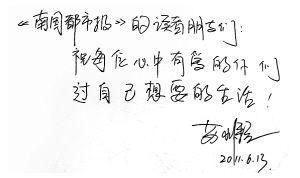 《南国都市报》的读者朋友们:
祝每位心中有爱的你们
过自己想要的生活!
2011.6.13.